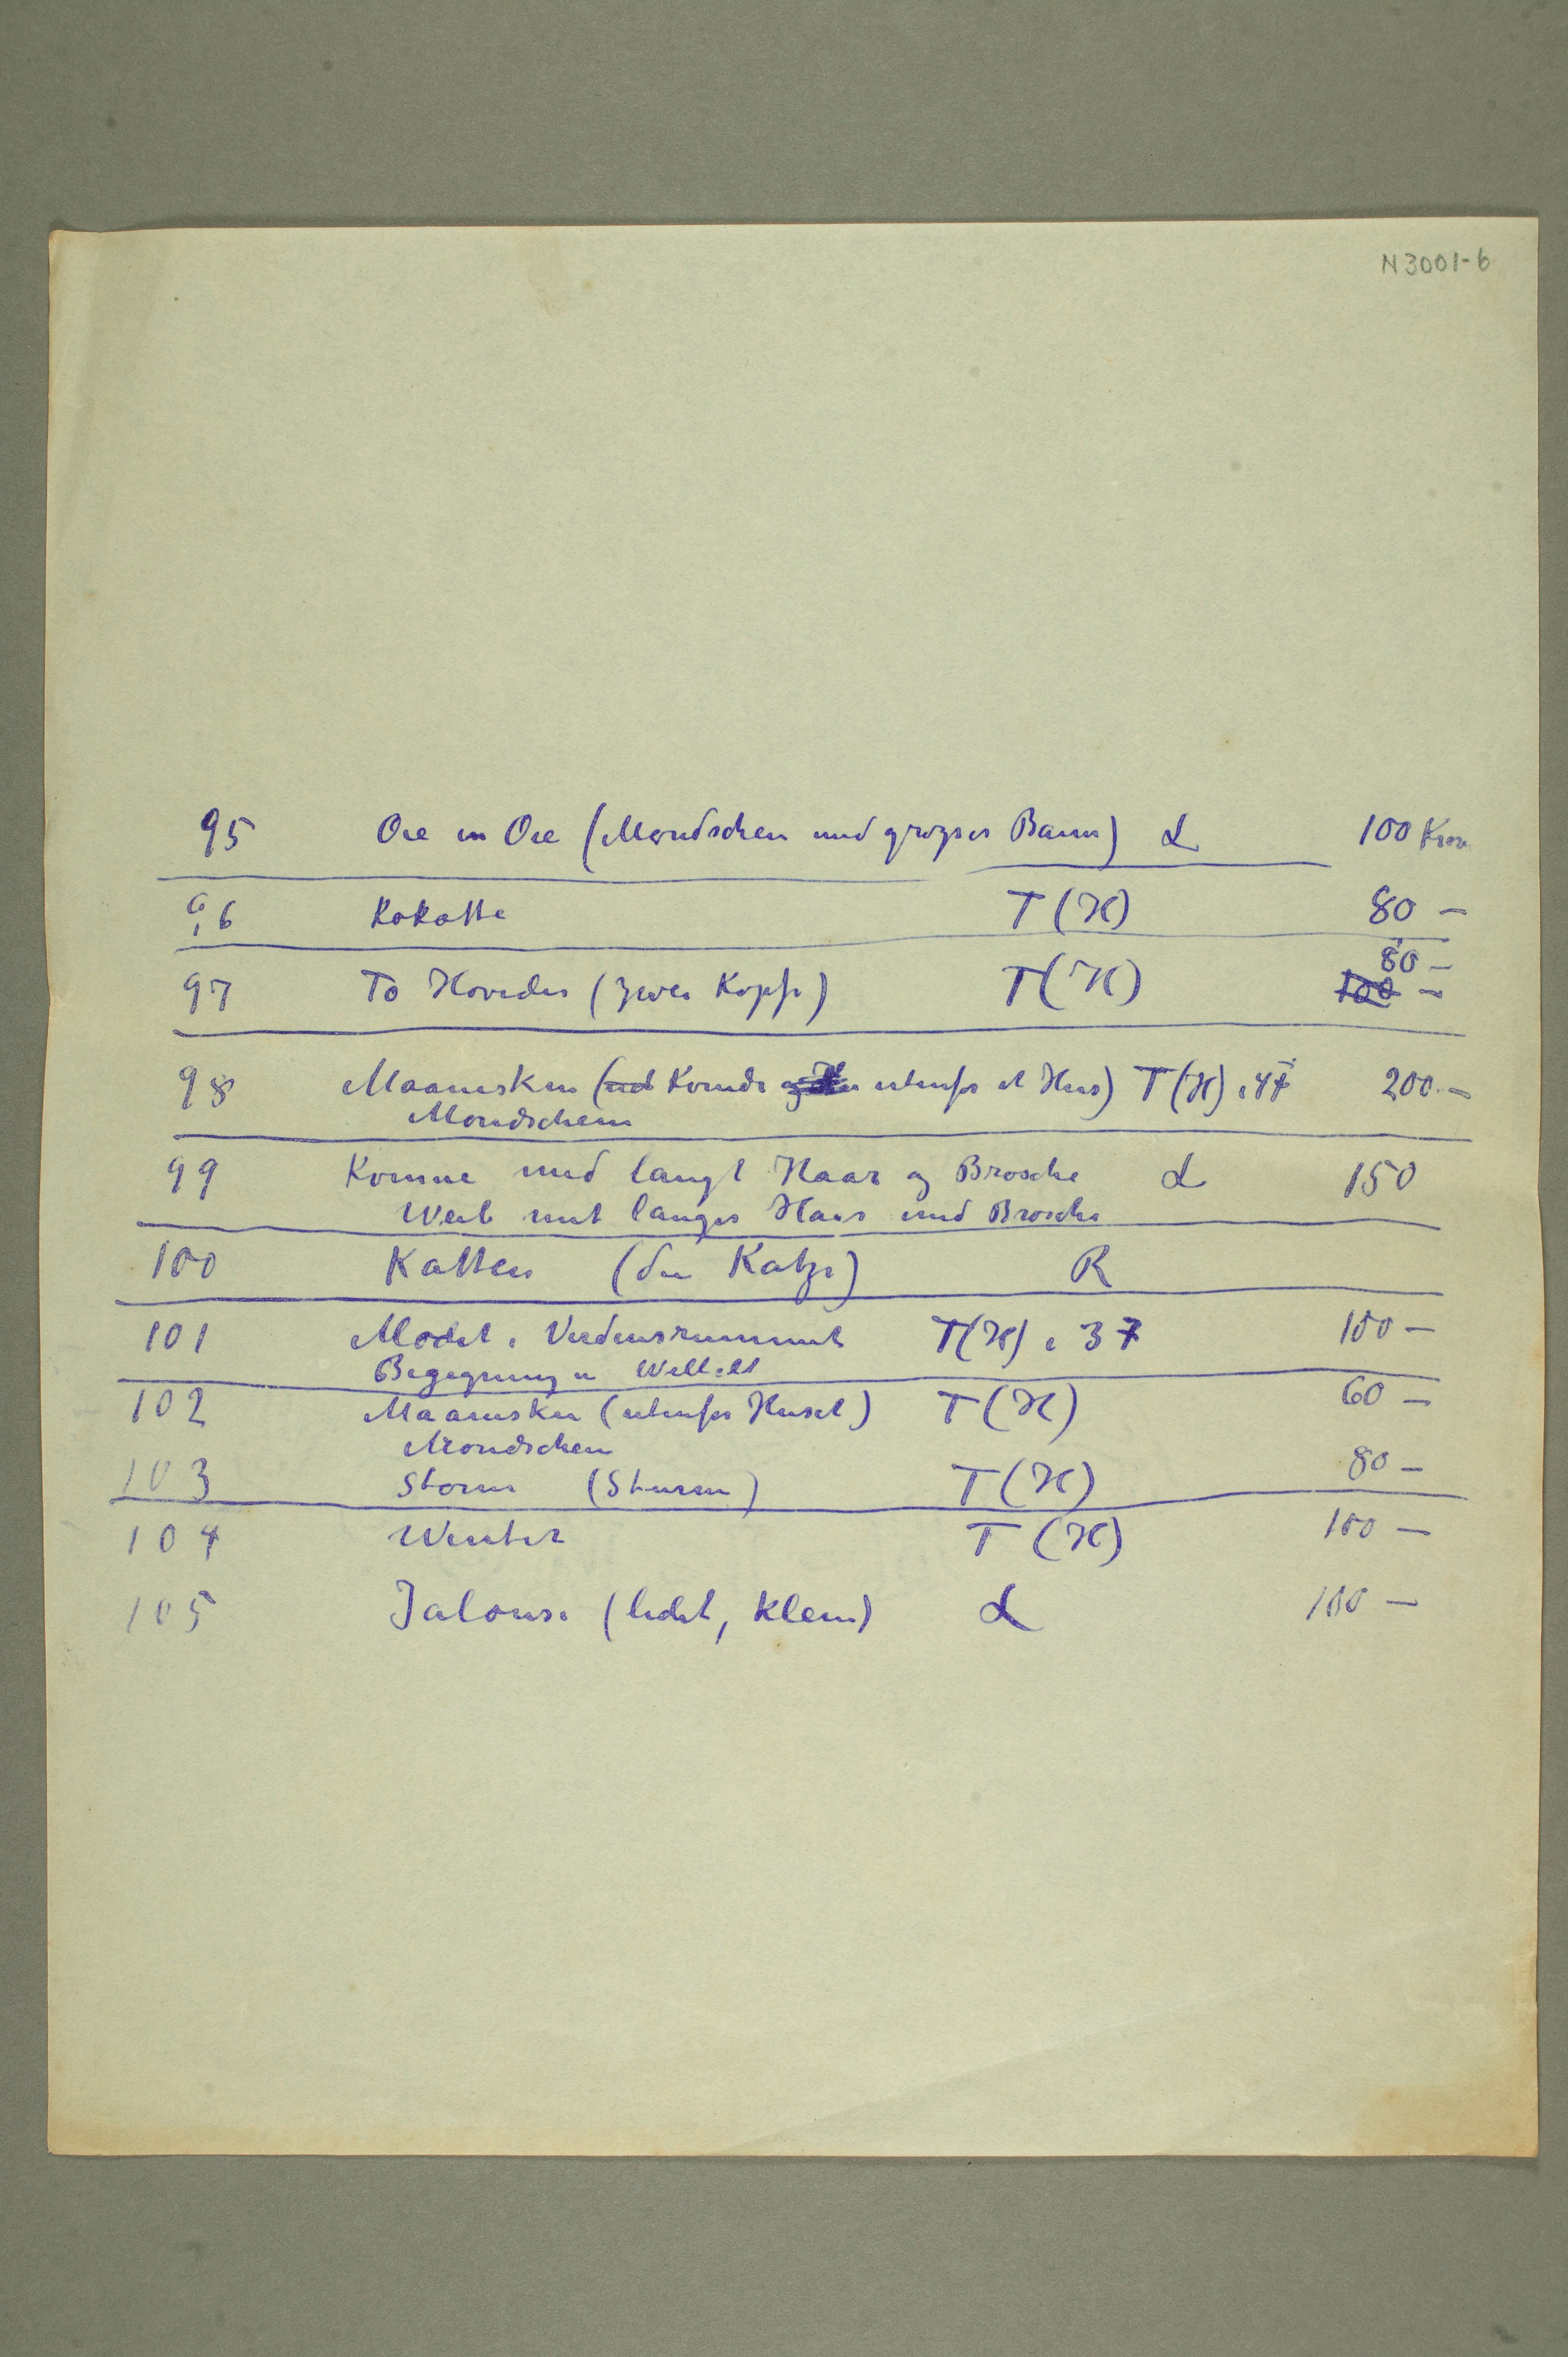 N3001-6
95 Øie in Øie (Mondschen und grozser Baum) L 100 Kron
96 Kokotte T(H) 80 –
80 –
97 To Hoveder (zwei Kopfe) T(H) 100 –
98 Maaneskin (ved Kvinde og udenfor et Hus) T(H) i 4 F 200. –
Mondschein
99 Kvinne med langt Haar og Brosche L 150
Weib mit langes Haar und Brosche
100 Katten (die Katze) R
101 Mødet i Verdensrummet T(H) i 3 F 100 –
Begegnung in Weltalt
102 Maaneskin (udenfor Huset) T(H) 60 –
Mondschein
103 Storm (Sturm) T(H) 80 –
104 Winter T(H) 100 –
105 Jalousi (lidet, klein) L 100 –